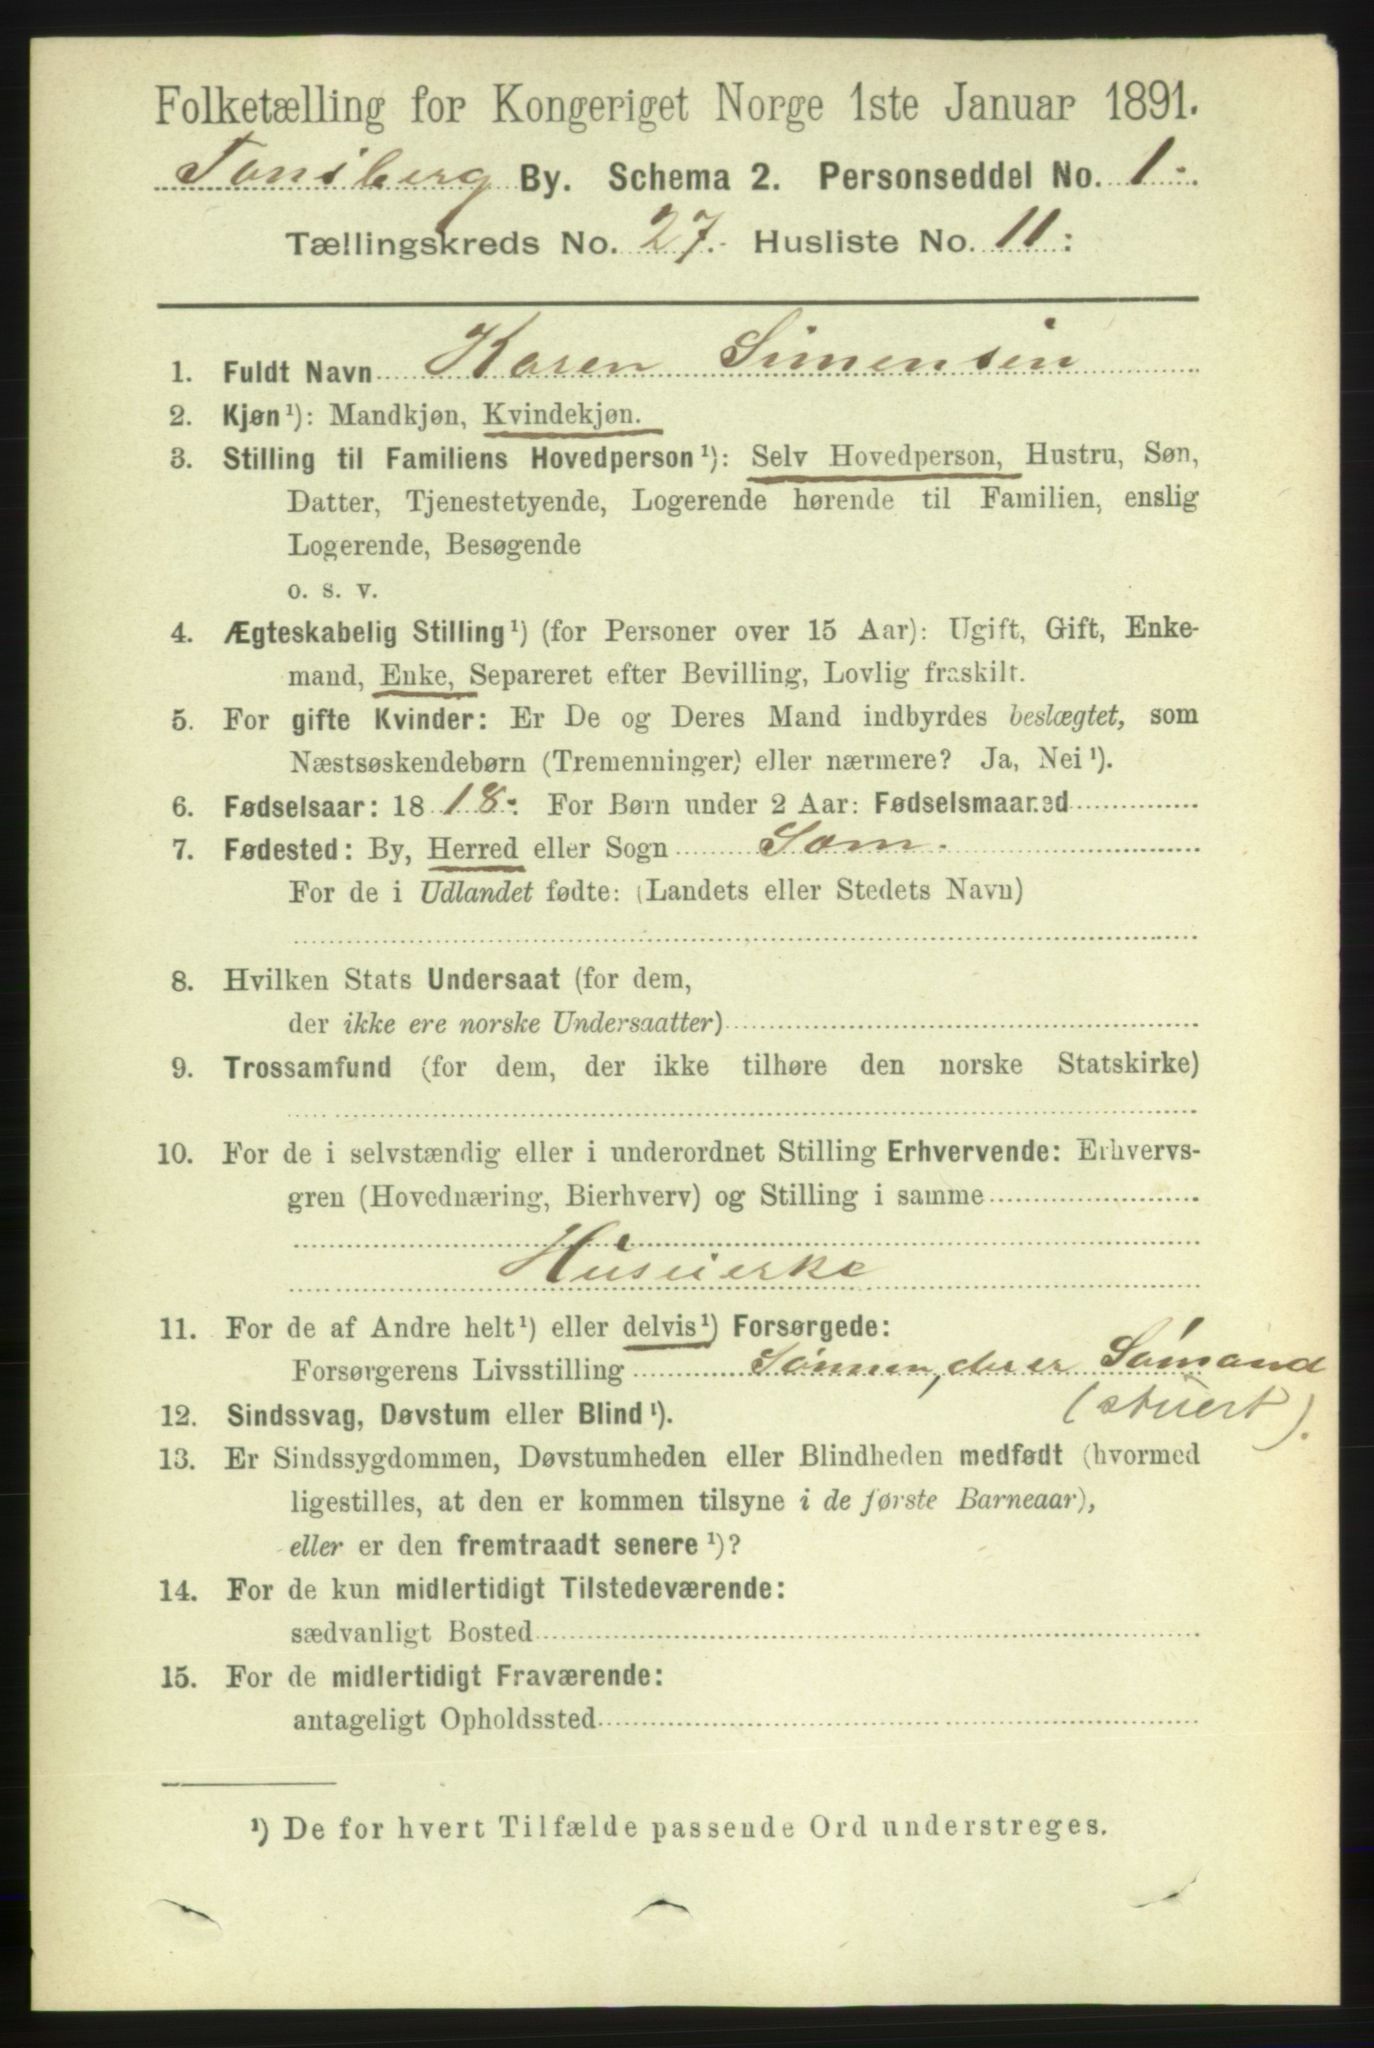 Folketælling for Kongeriget Norge 1ste Januar 1891.
Tønsberg By. Schema 2. Personseddel No. 1.
Tællingskreds No. 27. Husliste No. 11:
1. Fuldt Navn Karen Simensen
2. Kjøn¹): Mandkjøn, Kvindekjøn.
3. Stilling til Familiens Hovedperson¹): Selv Hovedperson, Hustru, Søn,
Datter, Tjenestetyende, Logerende hørende til Familien, enslig
Logerende, Besøgende
o. s. v.
4. Ægteskabelig Stilling¹) (for Personer over 15 Aar): Ugift, Gift, Enke-
mand, Enke, Separeret efter Bevilling, Lovlig fraskilt.
5. For gifte Kvinder: Er De og Deres Mand indbyrdes beslægtet, som
Næstsøskendebørn (Tremenninger) eller nærmere? Ja, Nei¹).
6. Fødselsaar: 1818. For Børn under 2 Aar: Fødselsmaaned
7. Fødested: By, Herred eller Sogn Sæm.
For de i Udlandet fødte: (Landets eller Stedets Navn)
8. Hvilken Stats Undersaat (for dem,
der ikke ere norske Undersaatter)
9. Trossamfund (for dem, der ikke tilhøre den norske Statskirke)
10. For de i selvstændig eller i underordnet Stilling Erhvervende: Erhvervs-
gren (Hovednæring, Bierhverv) og Stilling i samme
Husvierke
11. For de af Andre helt¹) eller delvis¹) Forsørgede:
Forsørgerens Livsstilling Sønnen, der er Sømand
(stuert).
12. Sindssvag, Døvstum eller Blind¹).
13. Er Sindssygdommen, Døvstumheden eller Blindheden medfødt (hvormed
ligestilles, at den er kommen tilsyne i de første Barneaar),
eller er den fremtraadt senere¹)?
14. For de kun midlertidigt Tilstedeværende:
sædvanligt Bosted
15. For de midlertidigt Fraværende:
antageligt Opholdssted
¹) De for hvert Tilfælde passende Ord understreges.